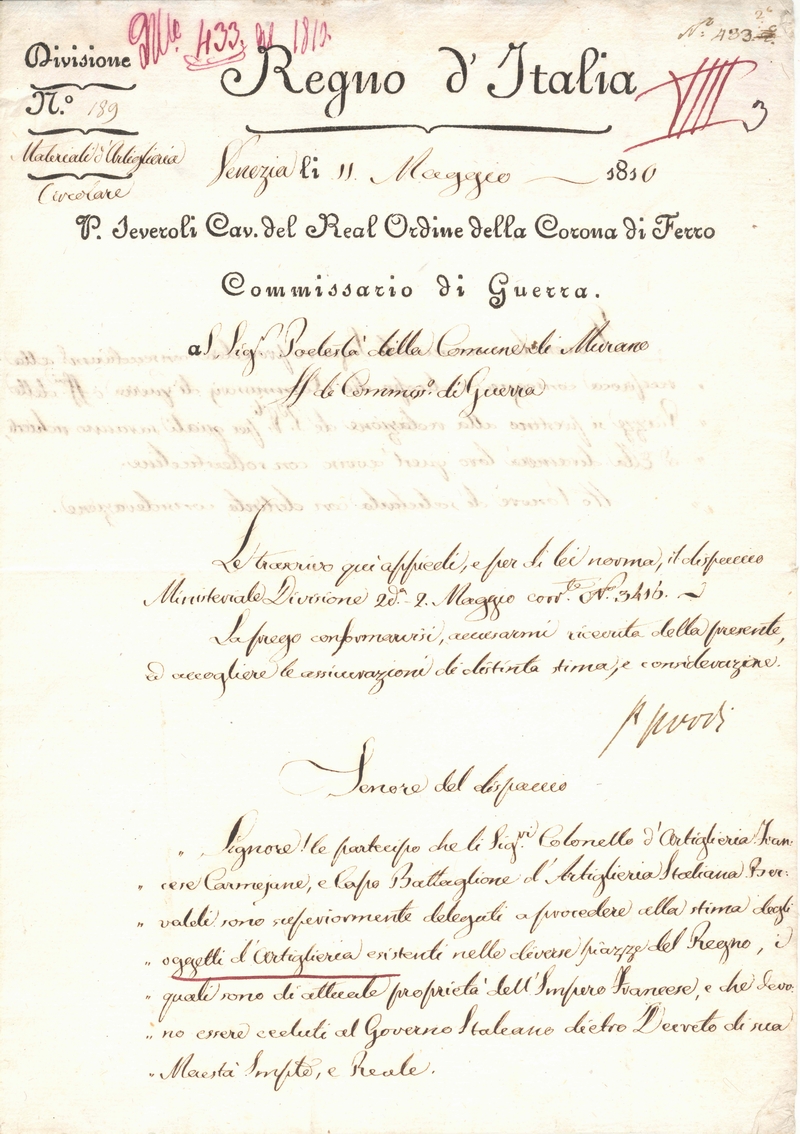 433 del 1810.
Nº 433
Divisione
N.º 189
Materiali d'Artiglieria
Circolare
Regno d'Italia
VIIII 3
Venezia li 11 Maggio 1810
P. Severoli Cav. del Real Ordine della Corona di Ferro
Commissario di Guerra.
al Sig.r Podestà della Comune di Murano
ff di Commiss.o di Guerra
Le trascrivo qui appiedi, e per di lei norma, il dispaccio
Ministeriale Divisione 2da 2. Maggio corr.te Nº 3416.
La prego conformarvisi, accusarmi ricevuta della presente,
ed accogliere le assicurazioni di distinta stima, e considerazione.
Tenore del dispaccio
" Signore! le partecipo che li Sig.ri Colonello d'Artiglieria Fran:
" cese Carmejane, e Capo Battaglione d'Artiglieria Italiana Ber:
" valdi sono superiormente delegati a procedere alla stima degli
" oggetti d'Artiglieria esistenti nelle diverse piazze del Regno, i
" quali sono di attuale proprietà dell'Impero Francese, e che devo:
" no essere ceduti al Governo Italiano dietro Decreto di sua
" Maestà Imple, e Reale.